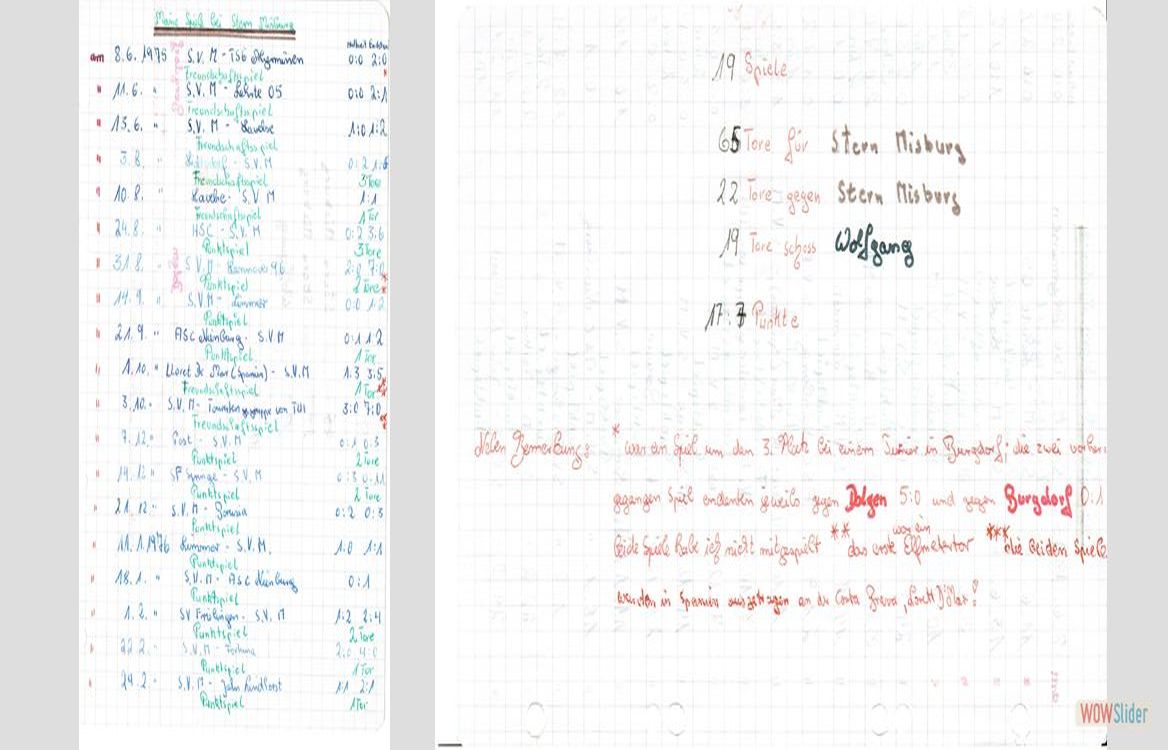 Meine Spiele bei Stern Misburg
am 8.6.1975 S.V.M - TSG 0:0 2:0
Freundschaftsspiel
" 11.6. " S.V.M - Lehrte 05 0:0 2:1
Freundschaftsspiel
" 13.6. " S.V.M - 1:0 1:2
Freundschaftsspiel
" 3.8. " - S.V.M 0:2 1:6
Freundschaftsspiel 3 Tore
" 10.8. " - S.V.M 1:1
Freundschaftsspiel 1 Tor
" 24.8. " HSC - S.V.M 0:2 3:6
Punktspiel 3 Tore
" 31.8. " S.V.M - Hannover 96 2:0 7:0
Punktspiel 2 Tore
" 14.9. " S.V.M - Limmer 0:0 1:2
Punktspiel
" 21.9. " ASC Nienburg - S.V.M 0:1 1:2
Punktspiel 1 Tor
" 1.10. " Lloret De Mar (Spanien) - S.V.M 1:3 3:5
Freundschaftsspiel 1 Tor
" 3.10. " S.V.M - Touristengruppe von TUI 3:0 7:0
Freundschaftsspiel
" 7.12. " Post - S.V.M 0:1 0:3
Punktspiel 2 Tore
" 14.12 " SF Springe - S.V.M 0:3 0:11
Punktspiel 2 Tore
" 21.12. " S.V.M - Borussia 0:2 0:3
Punktspiel
" 11.1.1976 Limmer - S.V.M. 1:0 1:1
Punktspiel
" 18.1. " S.V.M - ASC Nienburg 0:1
Punktspiel
" 1.2. " SV Frielingen - S.V.M 1:2 2:4
Punktspiel 2 Tore
" 22.2. " S.V.M - Fortuna 2:0 4:0
Punktspiel 1 Tor
" 24.2. " S.V.M - John Lindhorst 1:1 2:1
Punktspiel 1 Tor
19 Spiele
65 Tore für Stern Misburg
22 Tore gegen Stern Misburg
19 Tore schoss Wolfgang
17:7 Punkte
Neben Bemerkung: * war ein Spiel um den 3. Platz bei einem Turnier in Burgdorf; die zwei vorher-
gegangen Spiel endenten jeweils gegen Dolgen 5:0 und gegen Burgdorf 0:1
war ein
beide Spiele habe ich nicht mitgespielt ** das erste Elfmetertor *** die beiden Spiele
wurden in Spanien ausgetragen an der Costa Brava,
WOWSlider